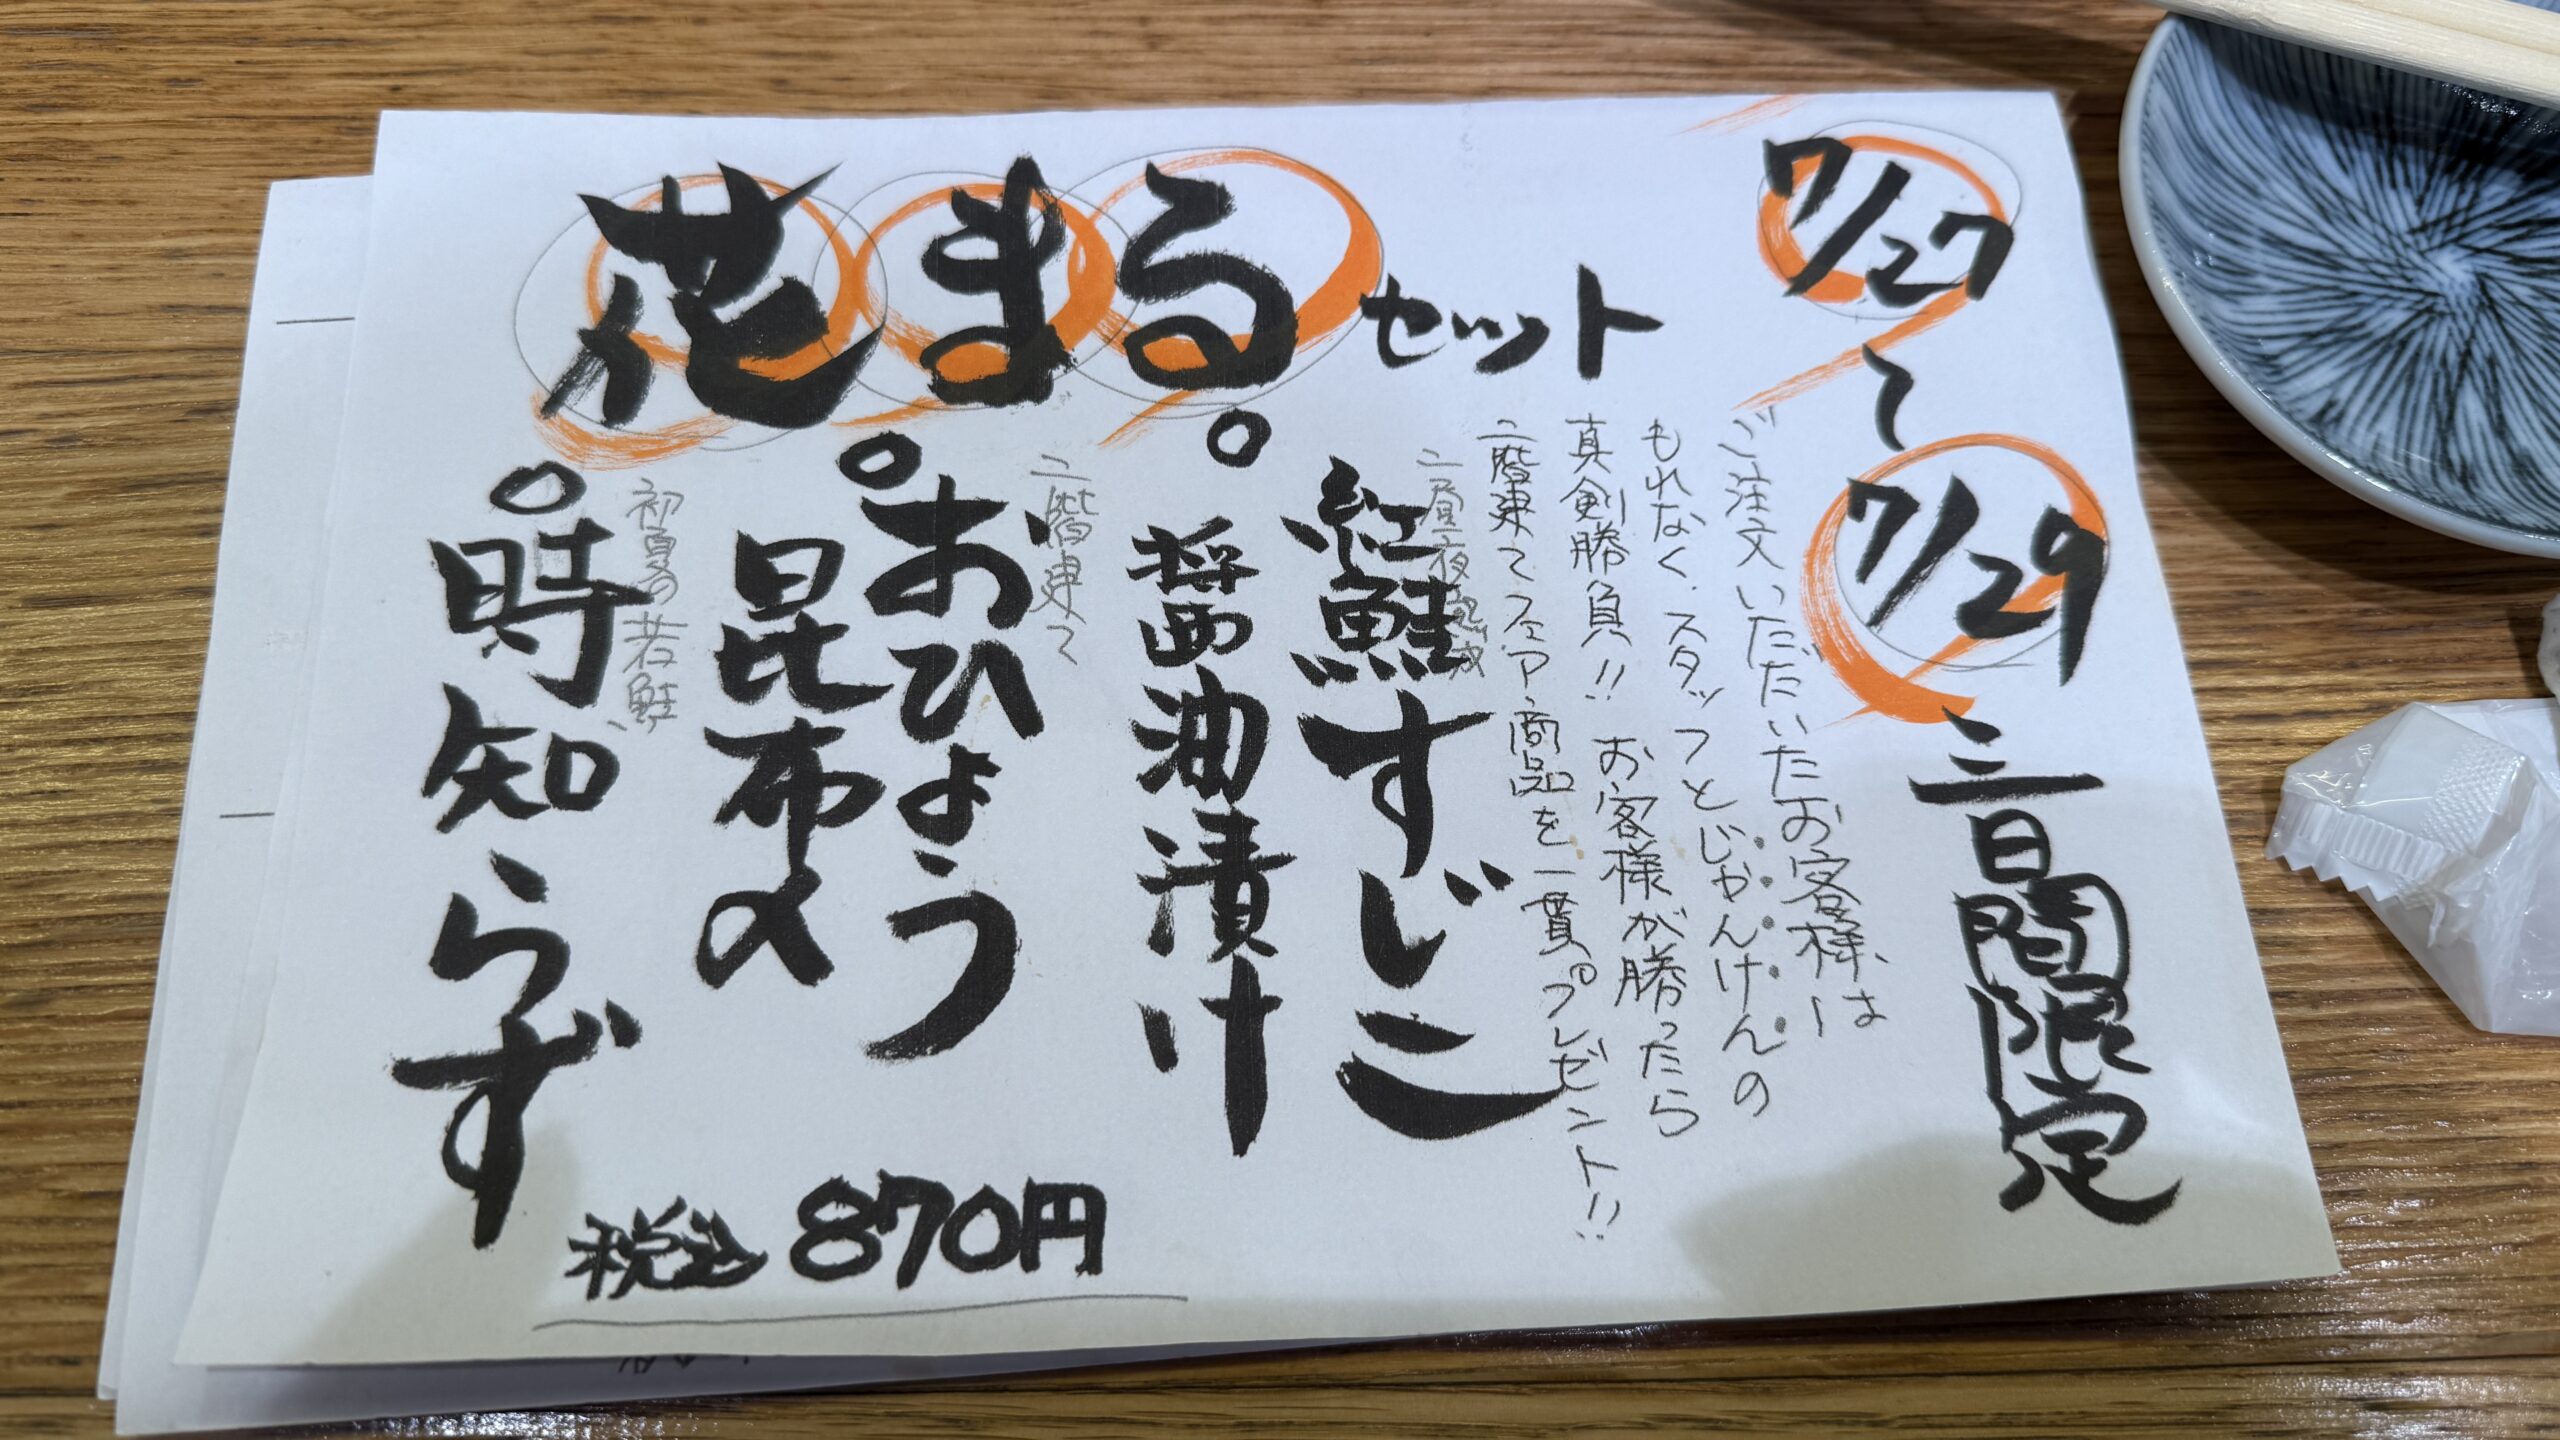 花まるセット
7/27
〜
7/29
三日間限定
ご注文いただいたお客様は
もれなく、スタッフとじゃんけんの
真剣勝負!! お客様が勝ったら
二階建てフェア商品を一貫プレゼント!!
二昼夜熟成
紅鮭すじこ
醤油漬け
二階建て
おひょう
昆布〆
初夏の若鮭
時知らず
税込870円